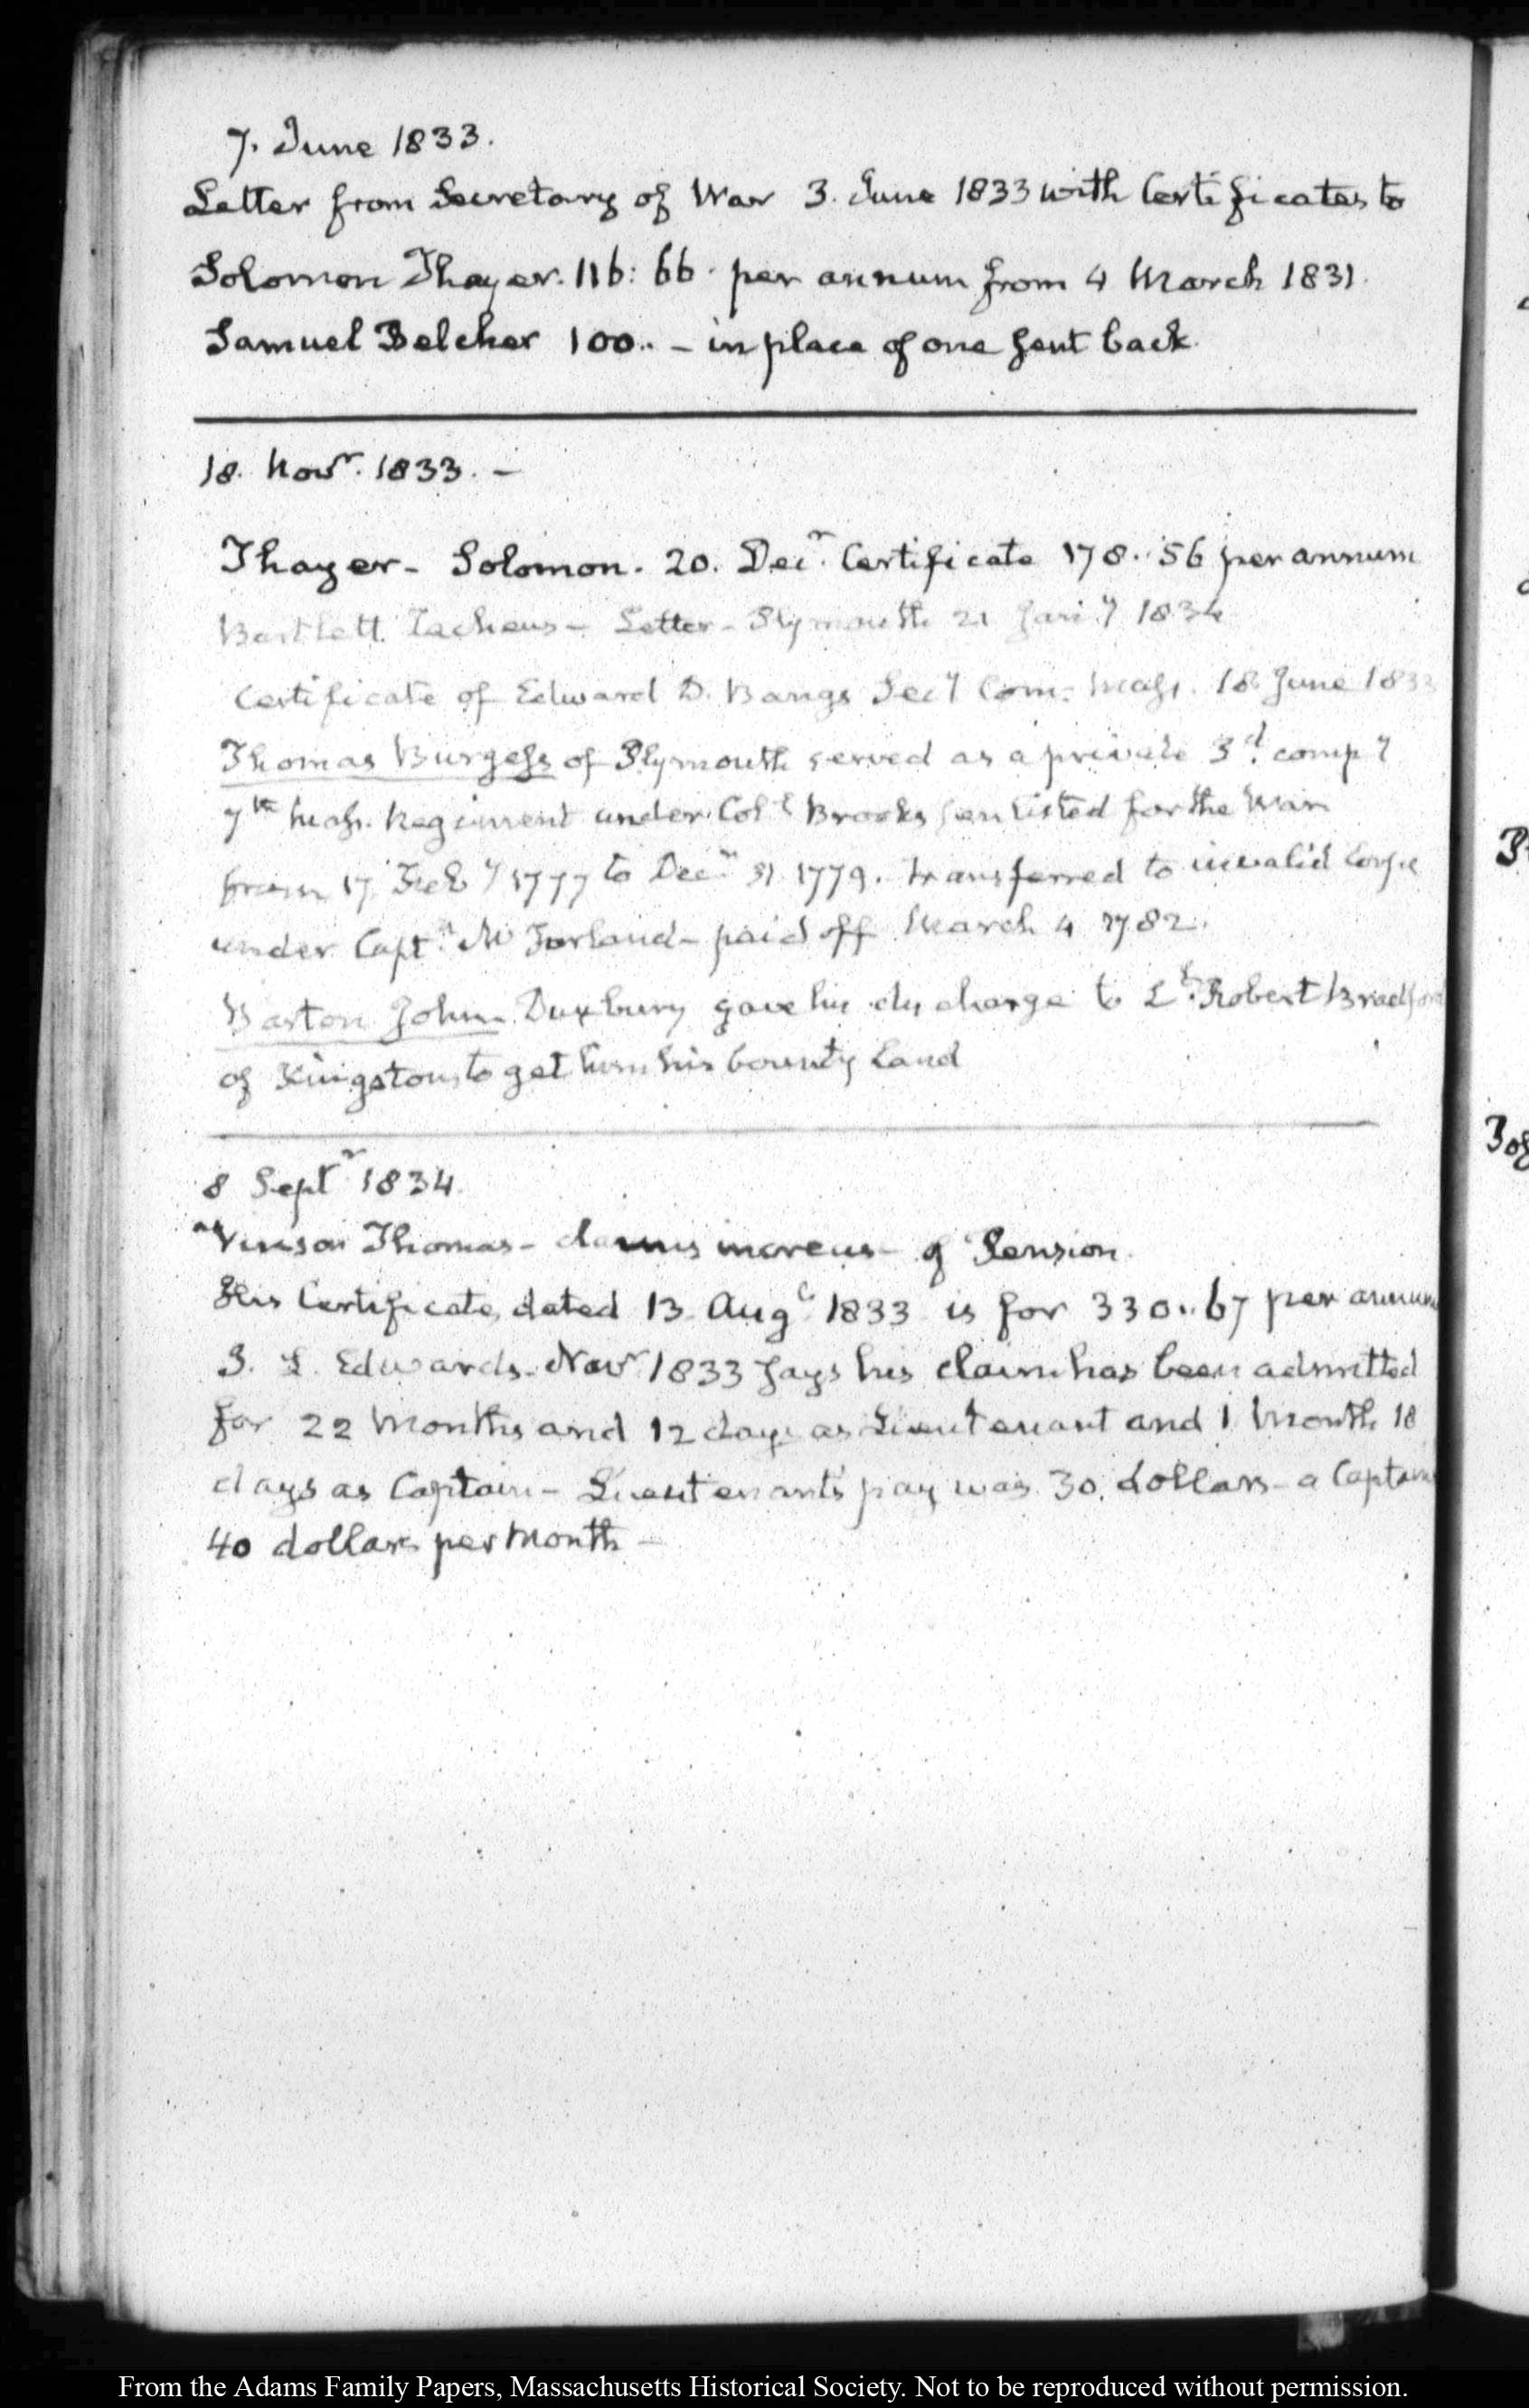 7. June 1833.
Letter from Secretary of War 3. June 1833 with Certificates to
Solomon Thayer. 116: 66. per annum from 4 March 1831.
Samuel Belcher 100.. – in place of one sent back.
18. Novr. 1833. –
Thayer – Solomon. 20. Decr. Certificate 178..56 per annum
Bartlett. Zacheus – Letter – Plymouth 21 Jany 1834
Certificate of Edward D. Bangs Secy Com: Mass. 18 June 1833
Thomas Burgess of Plymouth served as a private 3d. compy
7th Mass. Regiment under Coll Brooks enlisted for the War
from 17 Feby 1777 to Decr 31 1779. transferred to invalid Corps
under Captn. Mc Farland – paid off March 4 1782.
Barton John. Duxbury gave his discharge to Lt. Robert Bradford
of Kingston, to get him his bounty Land
8 Septr 1834.
Vinson Thomas – claims increase of Pension.
His Certificate, dated 13 Augt 1833 is for 330..67 per annum
J. L. Edwards. Novr 1833 says his claim has been admitted
for 22 Months and 12 days as Lieutenant and 1 Month 18
days as Captain – Lieutenant's pay was 30. dollars – a Captain
40 dollars per Month –
From the Adams Family Papers, Massachusetts Historical Society. Not to be reproduced without permission.